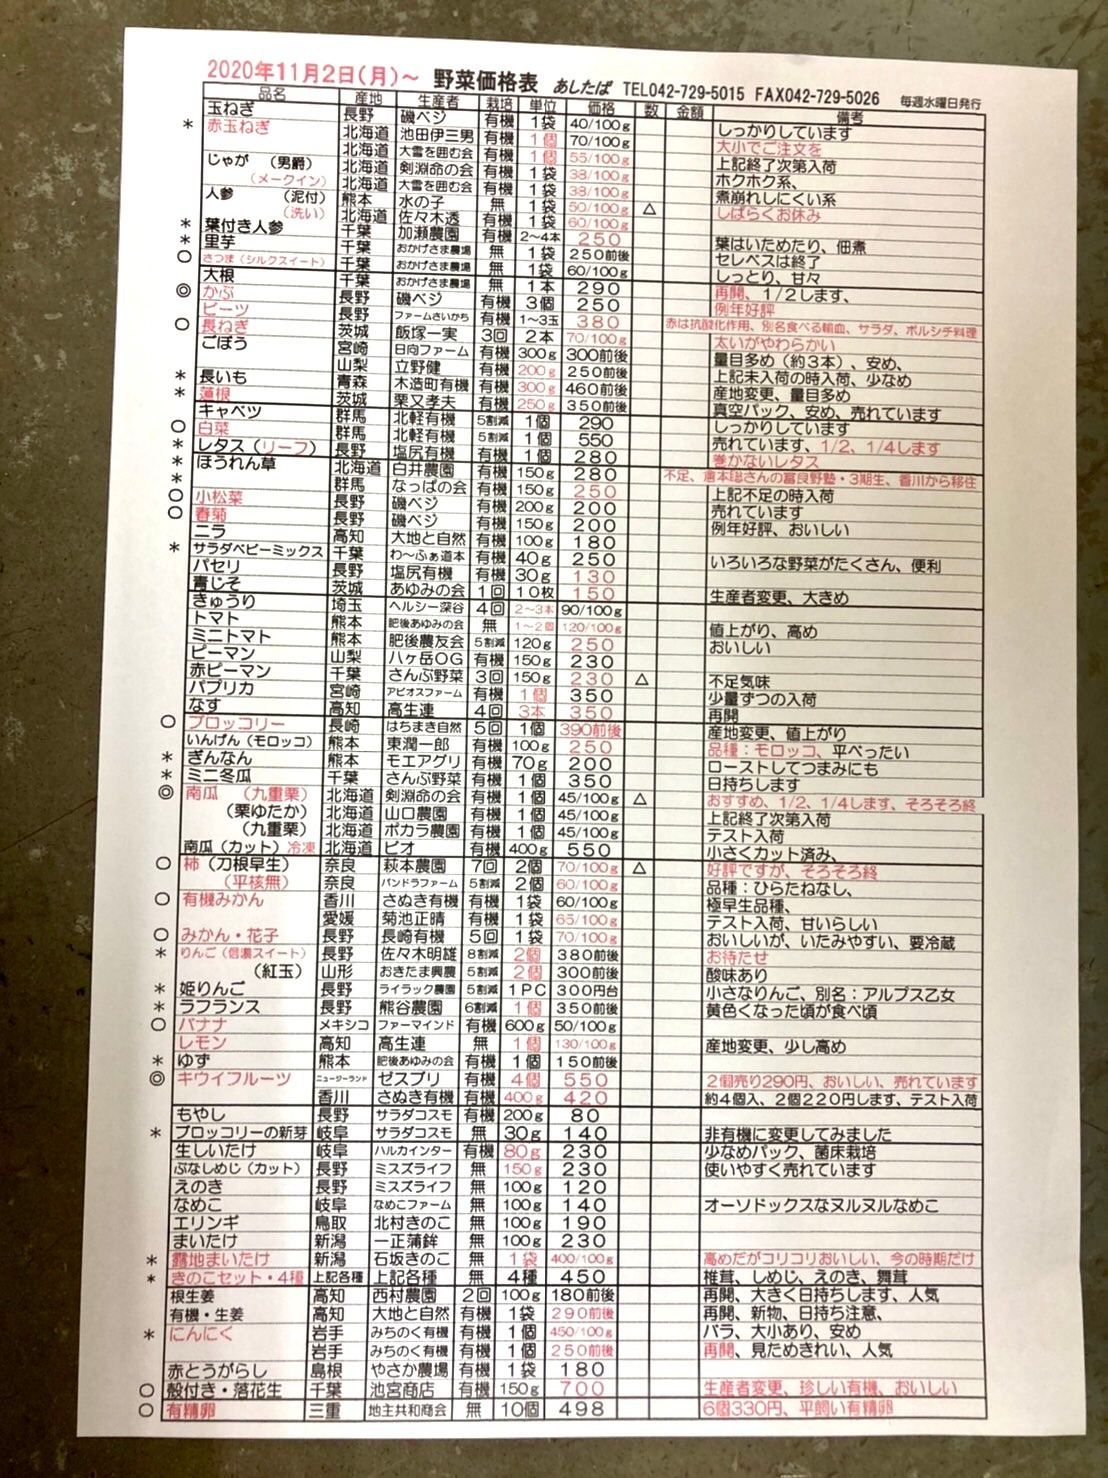 2020年11月2日(月)～ 野菜価格表 あしたば TEL042-729-5015 FAX042-729-5026 毎週水曜日発行
品名 産地 生産者 栽培 単位 価格 数 金額 備考
玉ねぎ 長野 磯ベジ 有機 1袋 40/100g しっかりしています
* 赤玉ねぎ 北海道 池田伊三男 有機 1個 70/100g 大小でご注文を
北海道 大雪を囲む会 有機 1個 55/100g 上記終了次第入荷
じゃが (男爵) 北海道 剣淵命の会 有機 1袋 38/100g ホクホク系、
(メークイン) 北海道 大雪を囲む会 有機 1袋 38/100g 煮崩れしにくい系
人参 (泥付) 熊本 水の子 無 1袋 50/100g △ しばらくお休み
(洗い) 北海道 佐々木透 有機 1袋 60/100g
* 葉付き人参 千葉 加瀬農園 有機 2～4本 250 葉はいためたり、佃煮
* 里芋 千葉 おかげさま農場 無 1袋 250前後 セレベスは終了
○ さつま(シルクスイート) 千葉 おかげさま農場 無 1袋 60/100g しっとり、甘々
大根 千葉 おかげさま農場 無 1本 290 再開、1/2します、
◎ かぶ 長野 磯ベジ 有機 3個 250 例年好評
ビーツ 長野 ファームさいかち 有機 1～3玉 380 赤は抗酸化作用、別名食べる輸血、サラダ、ボルシチ料理
○ 長ねぎ 茨城 飯塚一実 3回 2本 70/100g 太いがやわらかい
ごぼう 宮崎 日向ファーム 有機 300g 300前後 量目多め(約3本)、安め、
山梨 立野健 有機 200g 250前後 上記未入荷の時入荷、少なめ
* 長いも 青森 木造町有機 有機 300g 460前後 産地変更、量目多め
* 蓮根 茨城 栗又孝夫 有機 250g 350前後 真空パック、安め、売れています
キャベツ 群馬 北軽有機 5割減 1個 290 しっかりしています
○ 白菜 群馬 北軽有機 5割減 1個 550 売れています、1/2、1/4します
* レタス(リーフ) 長野 塩尻有機 有機 1個 280 巻かないレタス
* ほうれん草 北海道 白井農園 有機 150g 280 不足、倉本聡さんの富良野塾・3期生、香川から移住
* 群馬 なっぱの会 有機 150g 250 上記不足の時入荷
○ 小松菜 長野 磯ベジ 有機 200g 200 売れています
○ 春菊 長野 磯ベジ 有機 150g 200 例年好評、おいしい
ニラ 高知 大地と自然 有機 100g 180
* サラダベビーミックス 千葉 わ～ふぁ道本 有機 40g 250 いろいろな野菜がたくさん、便利
パセリ 長野 塩尻有機 有機 30g 130
青じそ 茨城 あゆみの会 1回 10枚 150 生産者変更、大きめ
きゅうり 埼玉 ヘルシー深谷 4回 2～3本 90/100g
トマト 熊本 肥後あゆみの会 無 1～2個 120/100g 値上がり、高め
ミニトマト 熊本 肥後農友会 5割減 120g 250 おいしい
ピーマン 山梨 八ヶ岳OG 有機 150g 230
赤ピーマン 千葉 さんぶ野菜 3回 150g 230 △ 不足気味
パプリカ 宮崎 アビオスファーム 有機 1個 350 少量ずつの入荷
なす 高知 高生連 4回 3本 350 再開
○ ブロッコリー 長崎 はちまき自然 5回 1個 390前後 産地変更、値上がり
いんげん(モロッコ) 熊本 東潤一郎 有機 100g 250 品種：モロッコ、平べったい
* ぎんなん 熊本 モエアグリ 有機 70g 200 ローストしてつまみにも
* ミニ冬瓜 千葉 さんぶ野菜 有機 1個 350 日持ちします
◎ 南瓜 (九重栗) 北海道 剣淵命の会 有機 1個 45/100g △ おすすめ、1/2、1/4します、そろそろ終
(栗ゆたか) 北海道 山口農園 有機 1個 45/100g 上記終了次第入荷
(九重栗) 北海道 ポカラ農園 有機 1個 45/100g テスト入荷
南瓜(カット)冷凍 北海道 ビオ 有機 400g 550 小さくカット済み、
○ 柿(刀根早生) 奈良 萩本農園 7回 2個 70/100g △ 好評ですが、そろそろ終
(平核無) 奈良 パンドラファーム 5割減 2個 60/100g 品種：ひらたねなし、
○ 有機みかん 香川 さぬき有機 有機 1袋 60/100g 極早生品種、
愛媛 菊池正晴 有機 1袋 65/100g テスト入荷、甘いらしい
○ みかん・花子 長野 長崎有機 5回 1袋 70/100g おいしいが、いたみやすい、要冷蔵
* りんご(信濃スイート) 長野 佐々木明雄 8割減 2個 380前後 お待たせ
(紅玉) 山形 おきたま興農 5割減 2個 300前後 酸味あり
* 姫りんご 長野 ライラック農園 5割減 1PC 300円台 小さなりんご、別名：アルプス乙女
* ラフランス 長野 熊谷農園 6割減 1個 350前後 黄色くなった頃が食べ頃
○ バナナ メキシコ ファーマインド 有機 600g 50/100g
レモン 高知 高生連 無 1個 130/100g 産地変更、少し高め
* ゆず 熊本 肥後あゆみの会 有機 1個 150前後
◎ キウイフルーツ ニュージーランド ゼスプリ 有機 4個 550 2個売り290円、おいしい、売れています
香川 さぬき有機 有機 400g 420 約4個入、2個220円します、テスト入荷
もやし 長野 サラダコスモ 有機 200g 80
* ブロッコリーの新芽 岐阜 サラダコスモ 無 30g 140 非有機に変更してみました
生しいたけ 岐阜 ハルカインター 有機 80g 230 少なめパック、菌床栽培
ぶなしめじ(カット) 長野 ミスズライフ 無 150g 230 使いやすく売れています
えのき 長野 ミスズライフ 無 100g 120
なめこ 岐阜 なめこファーム 無 100g 140 オーソドックスなヌルヌルなめこ
エリンギ 鳥取 北村きのこ 無 100g 190
まいたけ 新潟 一正蒲鉾 無 100g 230
* 露地まいたけ 新潟 石坂きのこ 無 1袋 400/100g 高めだがコリコリおいしい、今の時期だけ
* きのこセット・4種 上記各種 上記各種 無 4種 450 椎茸、しめじ、えのき、舞茸
根生姜 高知 西村農園 2回 100g 180前後 再開、大きく日持ちします、人気
有機・生姜 高知 大地と自然 有機 1袋 290前後 再開、新物、日持ち注意、
* にんにく 岩手 みちのく有機 有機 1個 450/100g バラ、大小あり、安め
岩手 みちのく有機 有機 1個 250前後 再開、見ためきれい、人気
赤とうがらし 島根 やさか農場 有機 1袋 180
○ 殻付き・落花生 千葉 池宮商店 有機 150g 700 生産者変更、珍しい有機、おいしい
○ 有精卵 三重 地主共和商会 無 10個 498 6個330円、平飼い有精卵